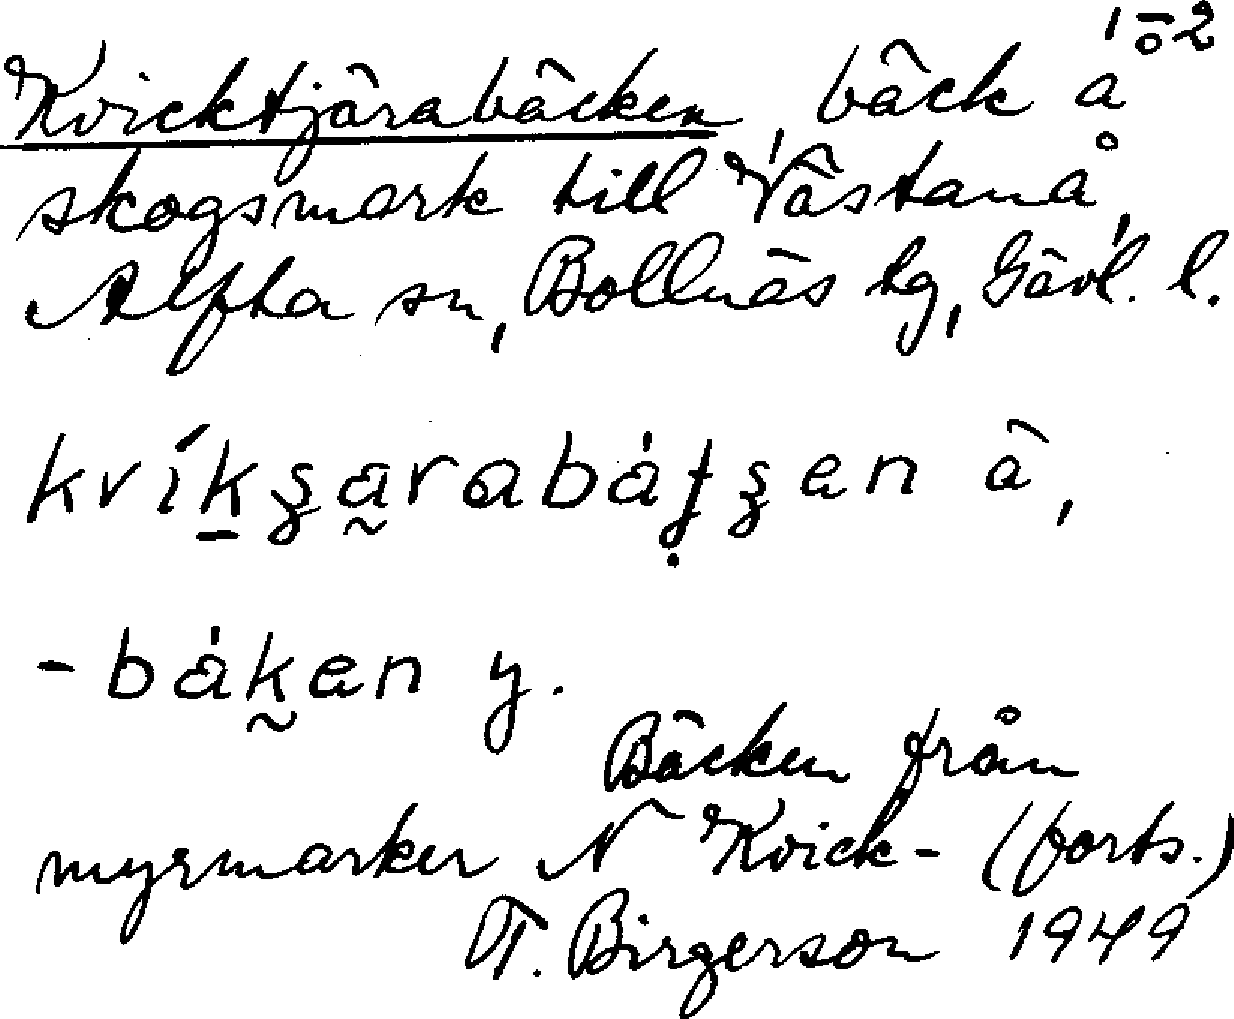 1-2
Kvicktjärabäcken, bäck å
skogsmark till Västanå,
Alfta sn, Bollnäs tg, Gävl. l.
kvíkʂa̰rabátʂen ä,
-bák̰en y.
Bäcken från
myrmarker N Kvick- (forts.)
T. Birgerson 1949